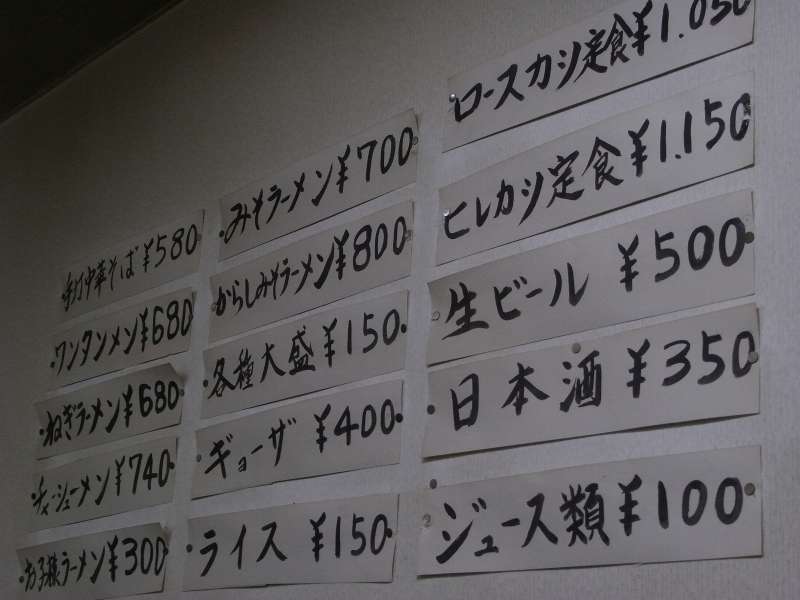 手打中華そば ¥580
ワンタンメン¥680
ねぎラーメン¥680
チャーシューメン¥740
お子様ラーメン¥300
みそラーメン¥700
からしみそラーメン¥800
各種大盛 ¥150
ギョーザ ¥400
ライス ¥150
ロースカツ定食¥1.050
ヒレカツ定食¥1.150
生ビール ¥500
日本酒 ¥350
ジュース類¥100